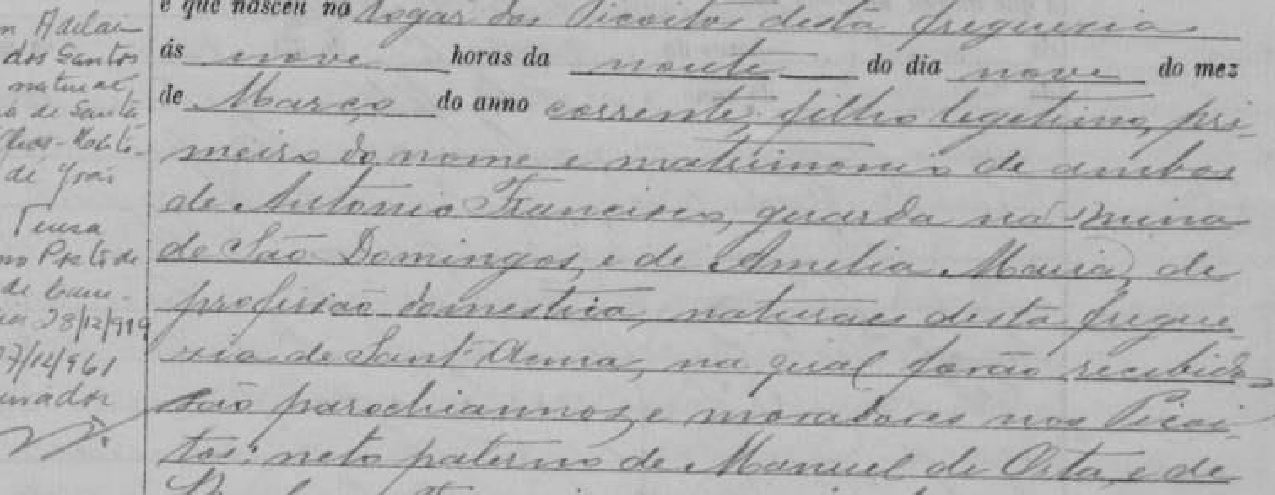 n Adelai
dos Santos
natural,
ia de Santa
de
Preto de
de
28/12/919
27/12/961
e que nasceu no logar dos Picoitos desta freguezia
ás nove horas da noute do dia nove do mez
de Março do anno corrente, filho legitimo, pri-
meiro do nome e matrimonio de ambos
de Antonio Francisco, guarda na Mina
de São Domingos, e de Amelia Maria, de
profissão domestica, naturaes desta fregue-
zia de Sant'Anna, na qual forão recebidos
são parochiannos, e moradores nos Picoi-
tos; neto paterno de Manuel de Orta, e de